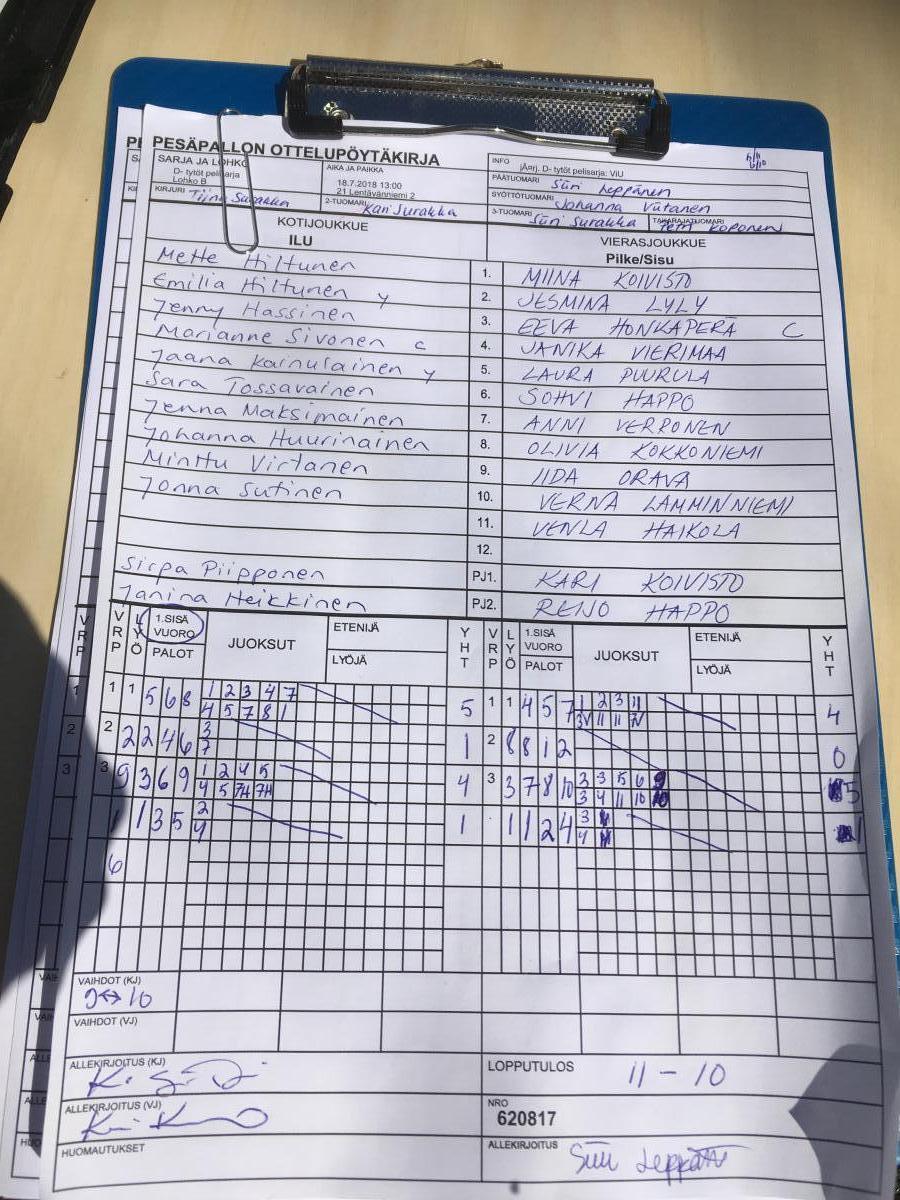 PESÄPALLON OTTELUPÖYTÄKIRJA
SARJA JA LOHKO
D- tytöt pelisarja
Lohko B
AIKA JA PAIKKA
18.7.2018 13:00
21 Lentävänniemi 2
INFO
jÄ¤rj. D- tytöt pelisarja: ViU
KIRJURI Tiina Surakka
2-TUOMARI Kari Surakka
PÄÄTUOMARI Siiri Leppänen
SYÖTTÖTUOMARI Johanna Viitanen
3-TUOMARI Siiri Surakka
TAKARAJATUOMARI Petri Koponen
KOTIJOUKKUE
ILU
VIERASJOUKKUE
Pilke/Sisu
Mette Hiltunen 1. MIINA KOIVISTO
Emilia Hiltunen y 2. JESMINA LYLY
Jenny Hassinen 3. EEVA HONKAPERÄ C
Marianne Sivonen c 4. JANIKA VIERIMAA
Jaana Kainulainen y 5. LAURA PUURULA
Sara Tossavainen 6. SOHVI HAPPO
Jenna Maksimainen 7. ANNI VERRONEN
Johanna Huurinainen 8. OLIVIA KOKKONIEMI
Minttu Virtanen 9. IIDA ORAVA
Jonna Sutinen 10. VERNA LAMMINNIEMI
11. VENLA HAIKOLA
12.
Sirpa Piipponen PJ1. KARI KOIVISTO
Janina Heikkinen PJ2. REIJO HAPPO
VRP LYÖ 1.SISÄ VUORO PALOT JUOKSUT ETENIJÄ LYÖJÄ YHT VRP LYÖ 1.SISÄ VUORO PALOT JUOKSUT ETENIJÄ LYÖJÄ YHT
1 1 5 6 8 1 2 3 4 7 5 1 1 4 5 7 1 2 3 11 4
4 5 7 8 1 3V 11 11 7V
2 2 2 4 6 3 1 2 8 8 1 2 0
7
3 9 3 6 9 1 2 4 5 4 3 3 7 8 10 3 3 5 6 9 5
4 5 7H 7H 3 4 11 10 10
1 1 3 5 2 1 1 1 2 4 3 1
4 4
6
VAIHDOT (KJ)
9↔10
VAIHDOT (VJ)
ALLEKIRJOITUS (KJ)
LOPPUTULOS 11 - 10
ALLEKIRJOITUS (VJ)
NRO
620817
HUOMAUTUKSET
ALLEKIRJOITUS Siiri Leppänen